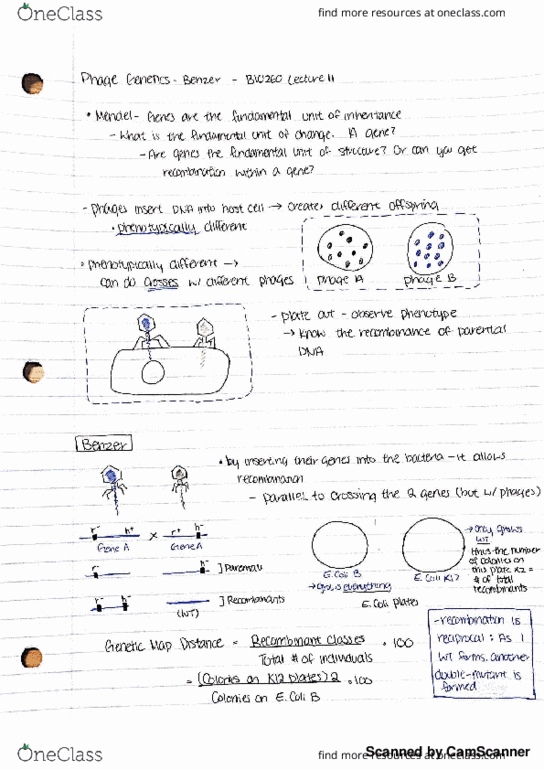 OneClass find more resources at oneclass.com
Phage Genetics - Benzer - BIO260 Lecture 11
• Mendel - Genes are the fundamental unit of inheritance
- What is the fundamental unit of change. A gene?
- Are genes the fundamental unit of structure? Or can you get
recombination within a gene?
- Phages insert DNA into host cell → creates different offspring
• phenotypically different
• phenotypically different →
can do crosses w/ different phages
Phage A Phage B
- plate out - observe phenotype
→ know the recombinance of parental
DNA
Benzer
• by inserting their genes into the bacteria - it allows
recombination
- parallel to crossing the 2 genes (but w/ phages)
r⁻ h⁺ × r⁺ h⁻
Gene A Gene A
r⁻ h⁻ ] Parental
r⁻ h⁻ ] Recombinants
(WT)
E.Coli B
→ Grows everything
E.Coli K12
E.Coli plates
→ only grows
WT
thus the number
of colonies on
this plate x2 =
# of total
recombinants
Genetic Map Distance = Recombinant classes • 100
Total # of individuals
= (Colonies on K12 plates) 2 • 100
Colonies on E.Coli B
- recombination is
reciprocal: As 1
WT forms, another
double-mutant is
formed
Scanned by CamScanner
OneClass find more resources at oneclass.com